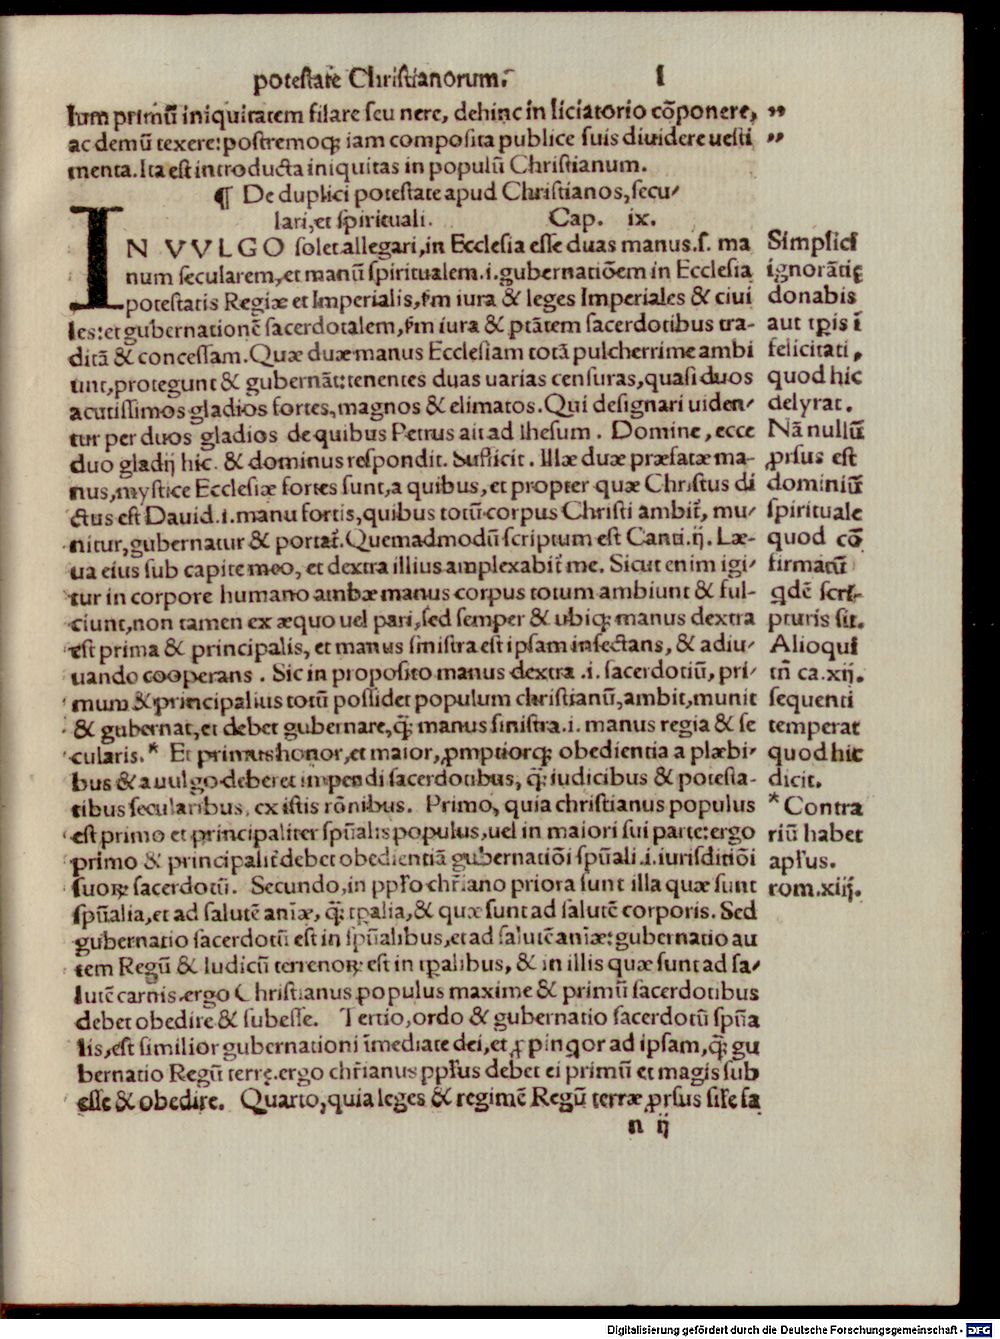 potestate Christianorum. I
lum primū iniquitatem filare seu nere, dehinc in liciatorio cōponere,
ac demū texere: postremoqꝫ iam composita publice suis diuidere uesti
menta. Ita est introducta iniquitas in populū Christianum.
¶ De duplici potestate apud Christianos, secu/
lari, et spirituali. Cap. ix.
IN VVLGO solet allegari, in Ecclesia esse duas manus. s. ma
num secularem, et manū spiritualem. i. gubernatiōem in Ecclesia
potestatis Regiæ et Imperialis, fm iura & leges Imperiales & ciui
les: et gubernationē sacerdotalem, fm iura & ptātem sacerdotibus tra-
ditā & concessam. Quæ duæ manus Ecclesiam totā pulcherrime ambi
unt, protegunt & gubernāt: tenentes duas uarias censuras, quasi duos
acutissimos gladios fortes, magnos & elimatos. Qui designari uiden/
tur per duos gladios de quibus Petrus ait ad Ihesum. Domine, ecce
duo gladij hic. & dominus respondit. Sufficit. Illæ duæ præfatæ ma-
nus, mystice Ecclesiæ fortes sunt, a quibus, et propter quæ Christus di
ctus est Dauid. i. manu fortis, quibus totū corpus Christi ambit̄, mu/
nitur, gubernatur & portat̄. Quemadmodū scriptum est Canti. ij. Læ-
ua eius sub capite meo, et dextra illius amplexabit̄ me. Sicut enim igi/
tur in corpore humano ambæ manus corpus totum ambiunt & ful-
ciunt, non tamen ex æquo uel pari, sed semper & ubiqꝫ manus dextra
est prima & principalis, et manus sinistra est ipsam insectans, & adiu/
uando cooperans. Sic in proposito manus dextra .i. sacerdotiū, pri/
mum & principalius totū possidet populum christianū, ambit, munit
& gubernat, et debet gubernare, q̄ꝫ manus sinistra. i. manus regia & se
cularis.* Et primus honor, et maior, ꝓmptiorqꝫ obedientia a plæbi/
bus & a uulgo deberet impendi sacerdotibus, q̄ꝫ iudicibus & potesta-
tibus secularibus, ex istis rōnibus. Primo, quia christianus populus
est primo et principaliter spūalis populus, uel in maiori sui parte: ergo
primo & principalit̄ debet obedientiā gubernatiōi spūali. i. iurisditiōi
suoꝝ sacerdotū. Secundo, in ppl̄o chr̄iano priora sunt illa quæ sunt
spūalia, et ad salutē anīæ, q̄ꝫ tꝑalia, & quæ sunt ad salutē corporis. Sed
gubernatio sacerdotū est in spūalibus, et ad salutē anīæ: gubernatio au
tem Regū & Iudicū terrenoꝝ est in tꝑalibus, & in illis quæ sunt ad sa/
lutē carnis. ergo Christianus populus maxime & primū sacerdotibus
debet obedire & subesse. Tertio, ordo & gubernatio sacerdotū spūa
lis, est similior gubernationi īmediate dei, et ꝓpinqor ad ipsam, q̄ꝫ gu
bernatio Regū terrę. ergo chr̄ianus ppl̄us debet ei primū et magis sub
esse & obedire. Quarto, quia leges & regimē Regū terræ ꝓrsus sil̄e sa
n ij
„
„
Simplici
ignorātię
donabis
aut tꝑis ī
felicitati,
quod hic
delyrat.
Nā nullū
ꝓrsus est
dominiū
spirituale
quod cō
firmatū
qdē scri-
pturis sit.
Alioqui
tn̄ ca. xij.
sequenti
temperat
quod hic
dicit.
*Contra
riū habet
apl̄us.
rom. xiij.
Digitalisierung gefördert durch die Deutsche Forschungsgemeinschaft - DFG